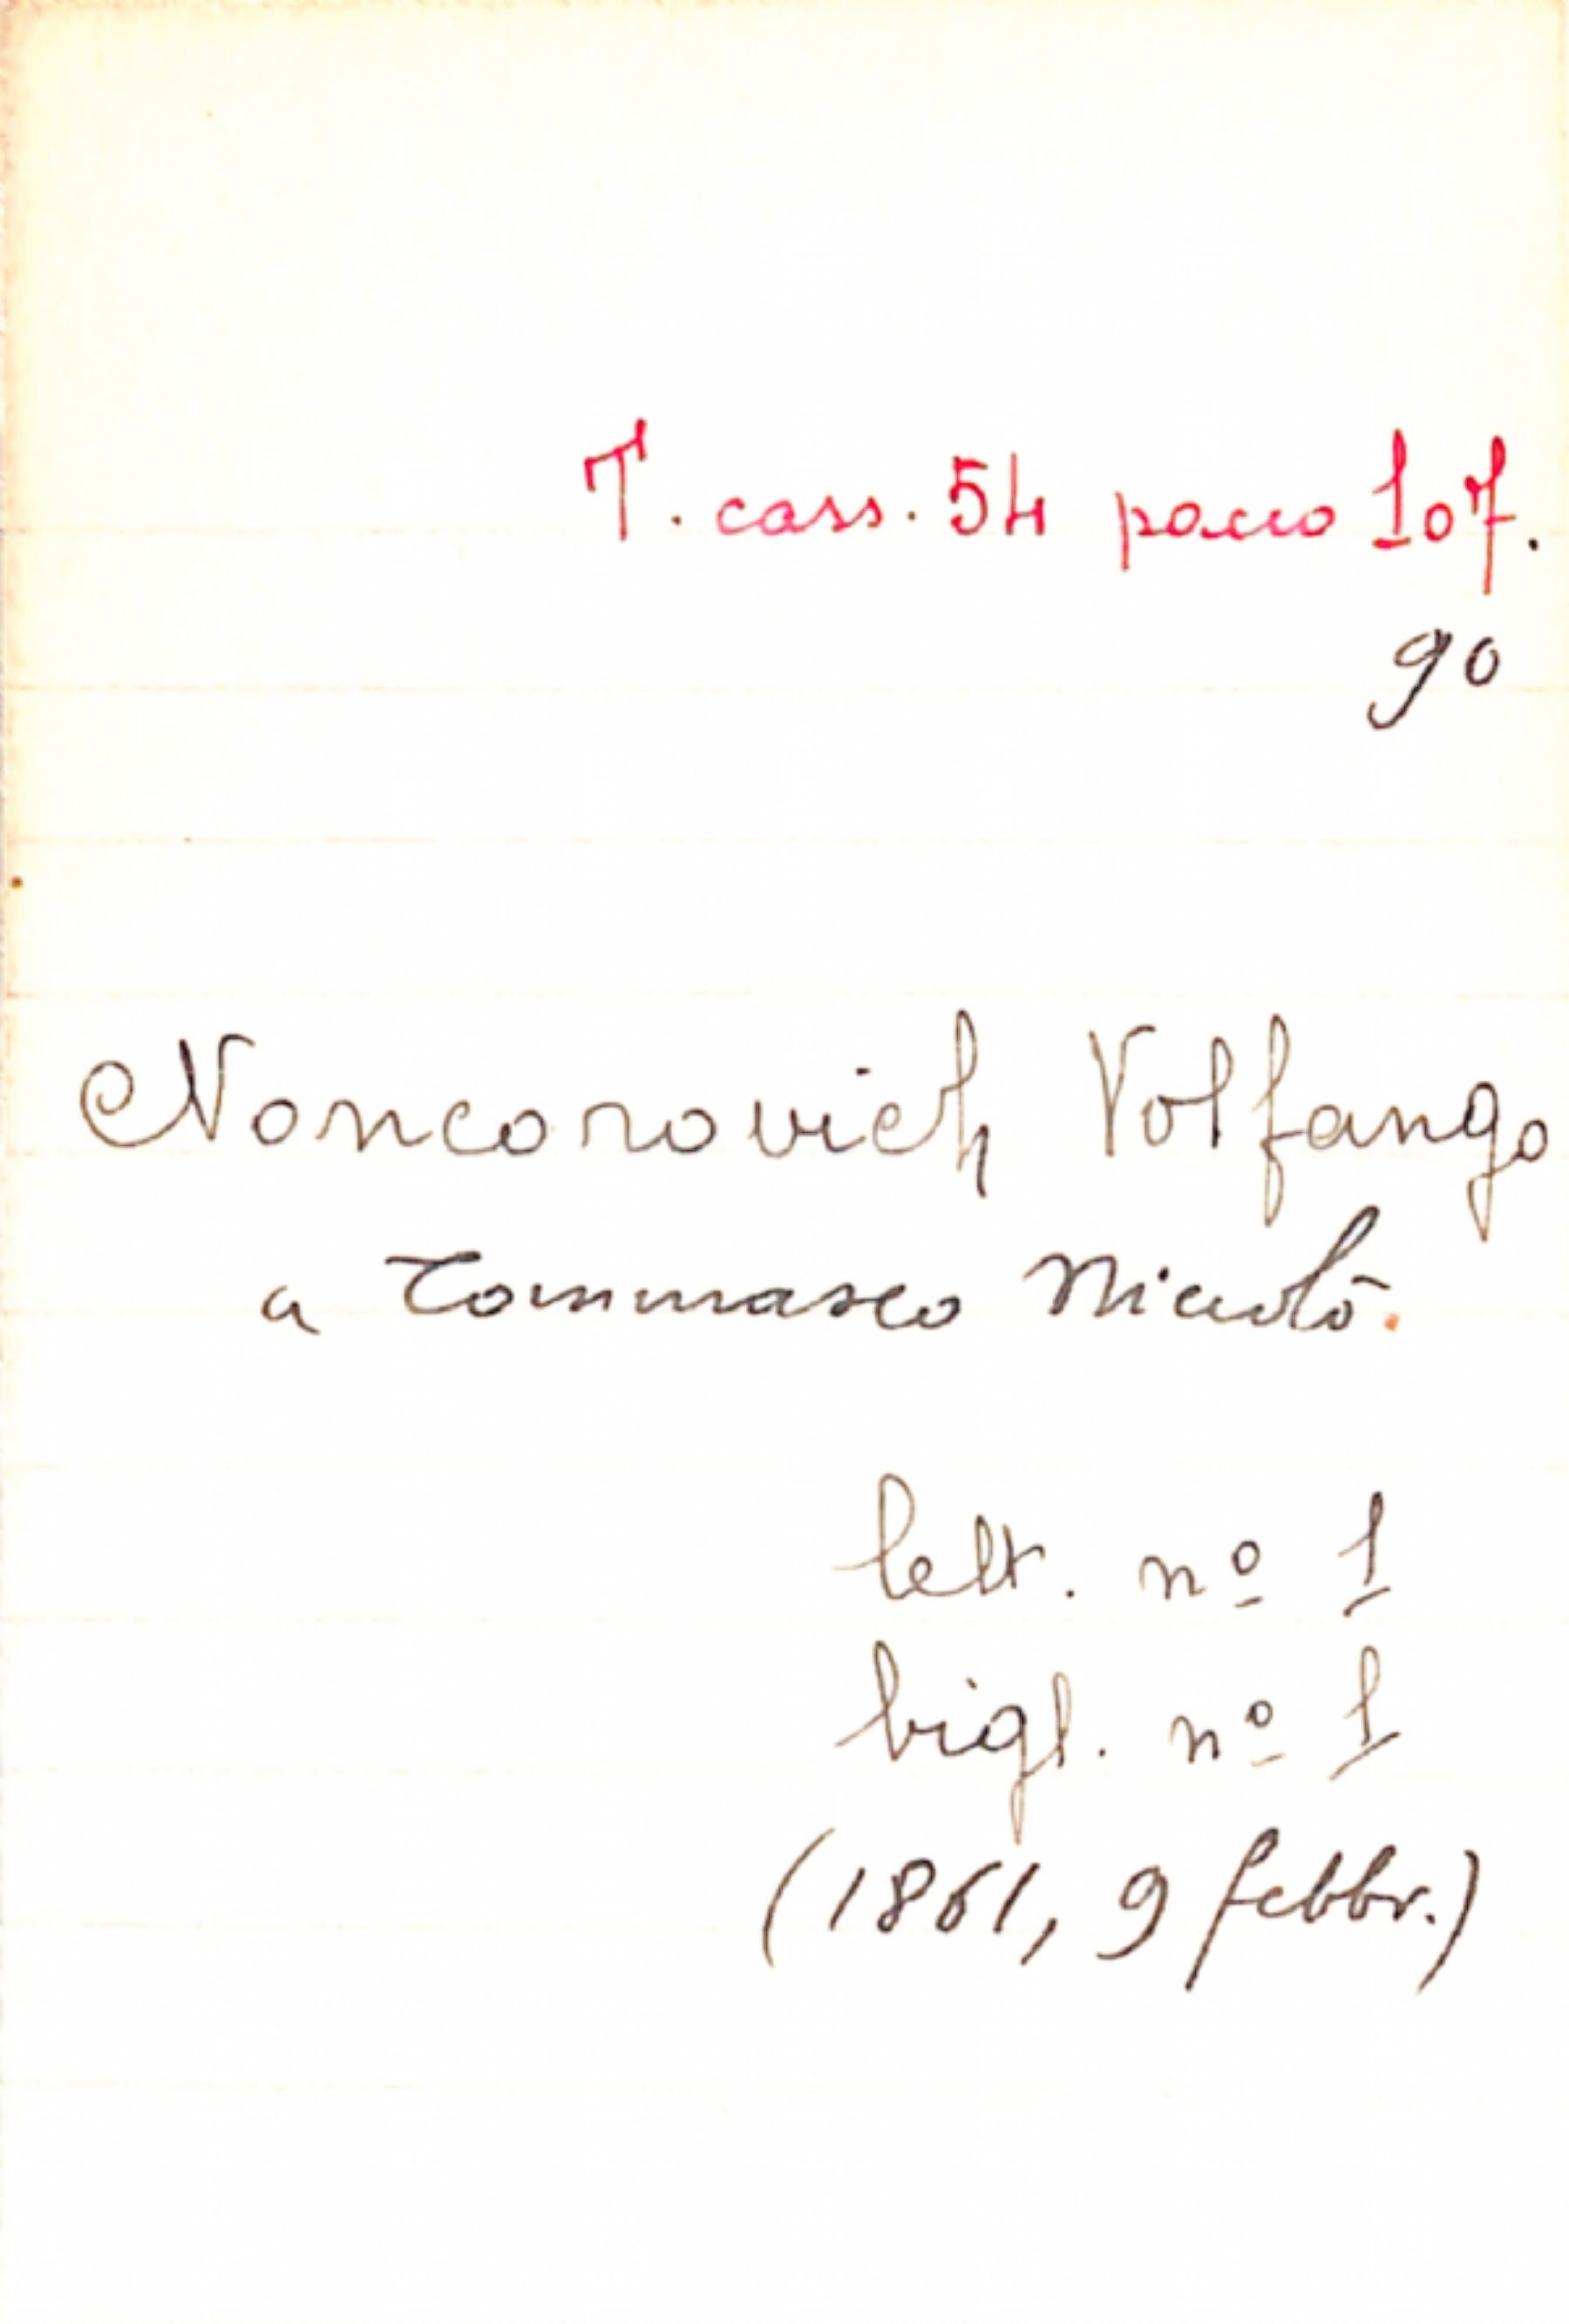 T. cass. 54 pacco 107.
90
Noncorovich Volfango
a Tommaseo Niccolò.
lett. nº 1
bigl. nº 1
(1861, 9 febbr.)